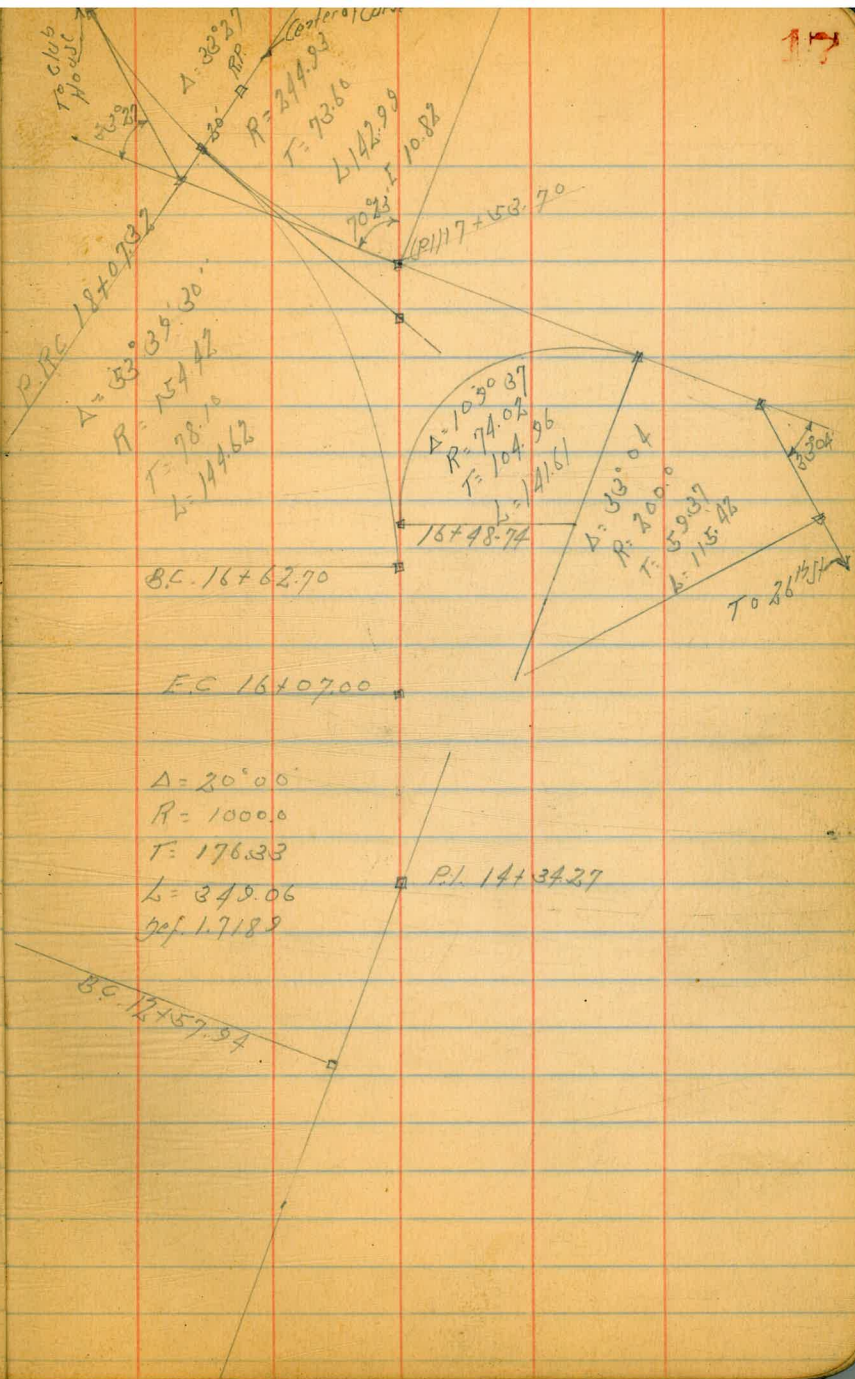 17
To Club
House
33°27
Δ = 33°27
R = 244.93
T = 73.60
L 142.99
E 10.82
R.P.
30'
Center of Curve
70°23'
(P.I.) 17 + 53.70
P.R.C. 18+07.32
Δ = 53°39'30"
R = 154.42
T = 78.10
L = 144.62
Δ = 109°37
R = 74.02
T = 104.96
L = 141.61
16+48.74
Δ = 33°04
R = 200.0
T = 59.37
L = 115.42
33°04
To 26th St
B.C. 16+62.70
E.C 16+07.00
Δ = 20°00'
R = 1000.0
T = 176.33
L = 349.06
Def. 1.7189
P.I. 14+34.27
B.C. 12+57.94